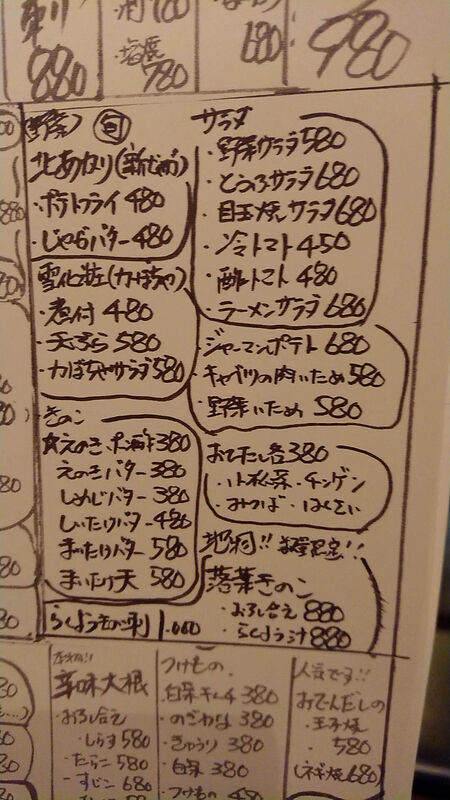 刺
880
780
680
980
野菜 旬
北あかり(新じゃが)
・ポテトフライ 480
・じゃがバター 480
雪化粧(かぼちゃ)
・煮付 480
・天ぷら 580
・かぼちゃサラダ 580
きのこ
☆えのきポン酢 380
えのきバター 380
しめじバター 380
しいたけバター 480
まいたけバター 580
まいたけ天 580
らくようきの刺 1.000
サラダ
・野菜サラダ 580
・とうふサラダ 680
・目玉焼サラダ 680
・冷トマト 450
・酢トマト 480
・ラーメンサラダ 680
ジャーマンポテト 680
・キャベツの肉いため 580
・野菜いため 580
おでだし各380
・小松菜・チンゲン
・みつば・はくさい
地物!! 数量限定!!
落葉きのこ
・おろし合え 880
・らくよう汁 880
辛味大根
・おろし合え
・しらす 580
・たらこ 580
・すじこ 680
つけもの
・白菜キムチ 380
・のざわな 380
・きゅうり 380
・白菜 380
・つけもの 480
人気です!!
おでんだしの
・玉子焼
・580
(ネギ焼680)